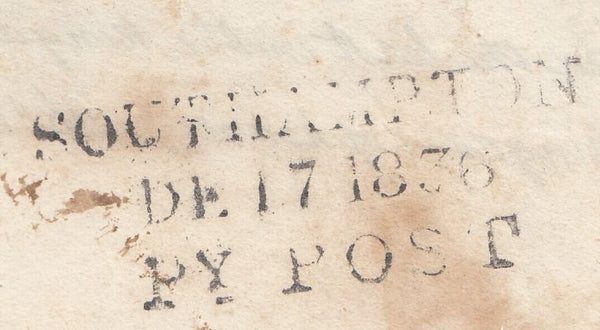 SOUTHAMPTON
DE 17 1836
PY POST